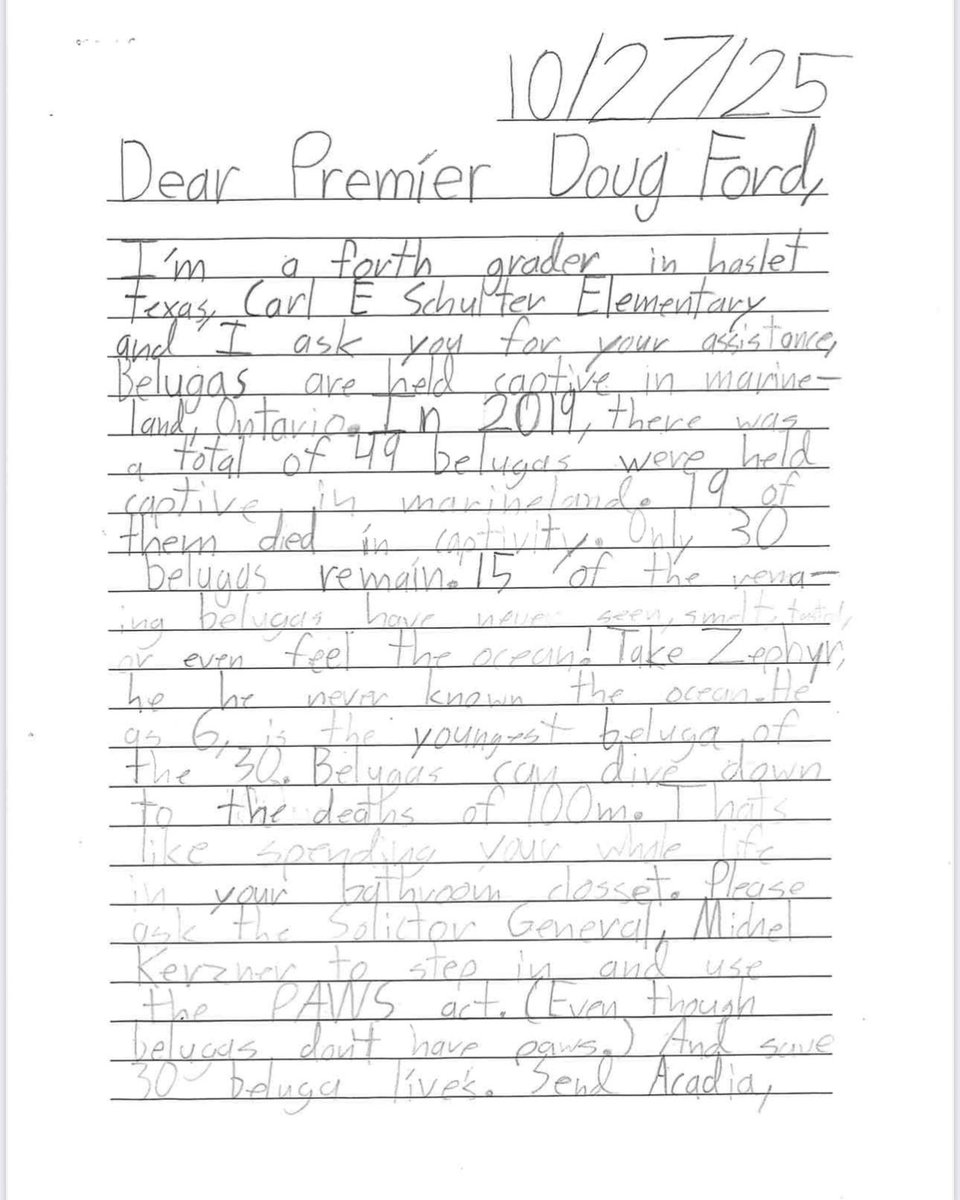 10/27/25
Dear Premier Doug Ford,
I'm a forth grader in haslet
texas, Carl E Schulter Elementary
and I ask you for your assistance,
Belugas are held captive in marine-
land, Ontario. In 2019, there was
a total of 49 belugas were held
captive in marineland. 19 of
them died in captivity. Only 30
belugas remain. 15 of the rema-
ing belugas have never seen, smelt, tasted,
or even feel the ocean! Take Zephyr,
he he never known the ocean. He
as 6, is the youngest beluga of
the 30. Belugas can dive down
to the deaths of 100m. Thats
like spending your whole life
in your bathroom closset. Please
ask the Solictor General, Michel
Kerzner to step in and use
the PAWS act. (Even though
belugas don't have paws.) And save
30 beluga live's. Send Acadia,